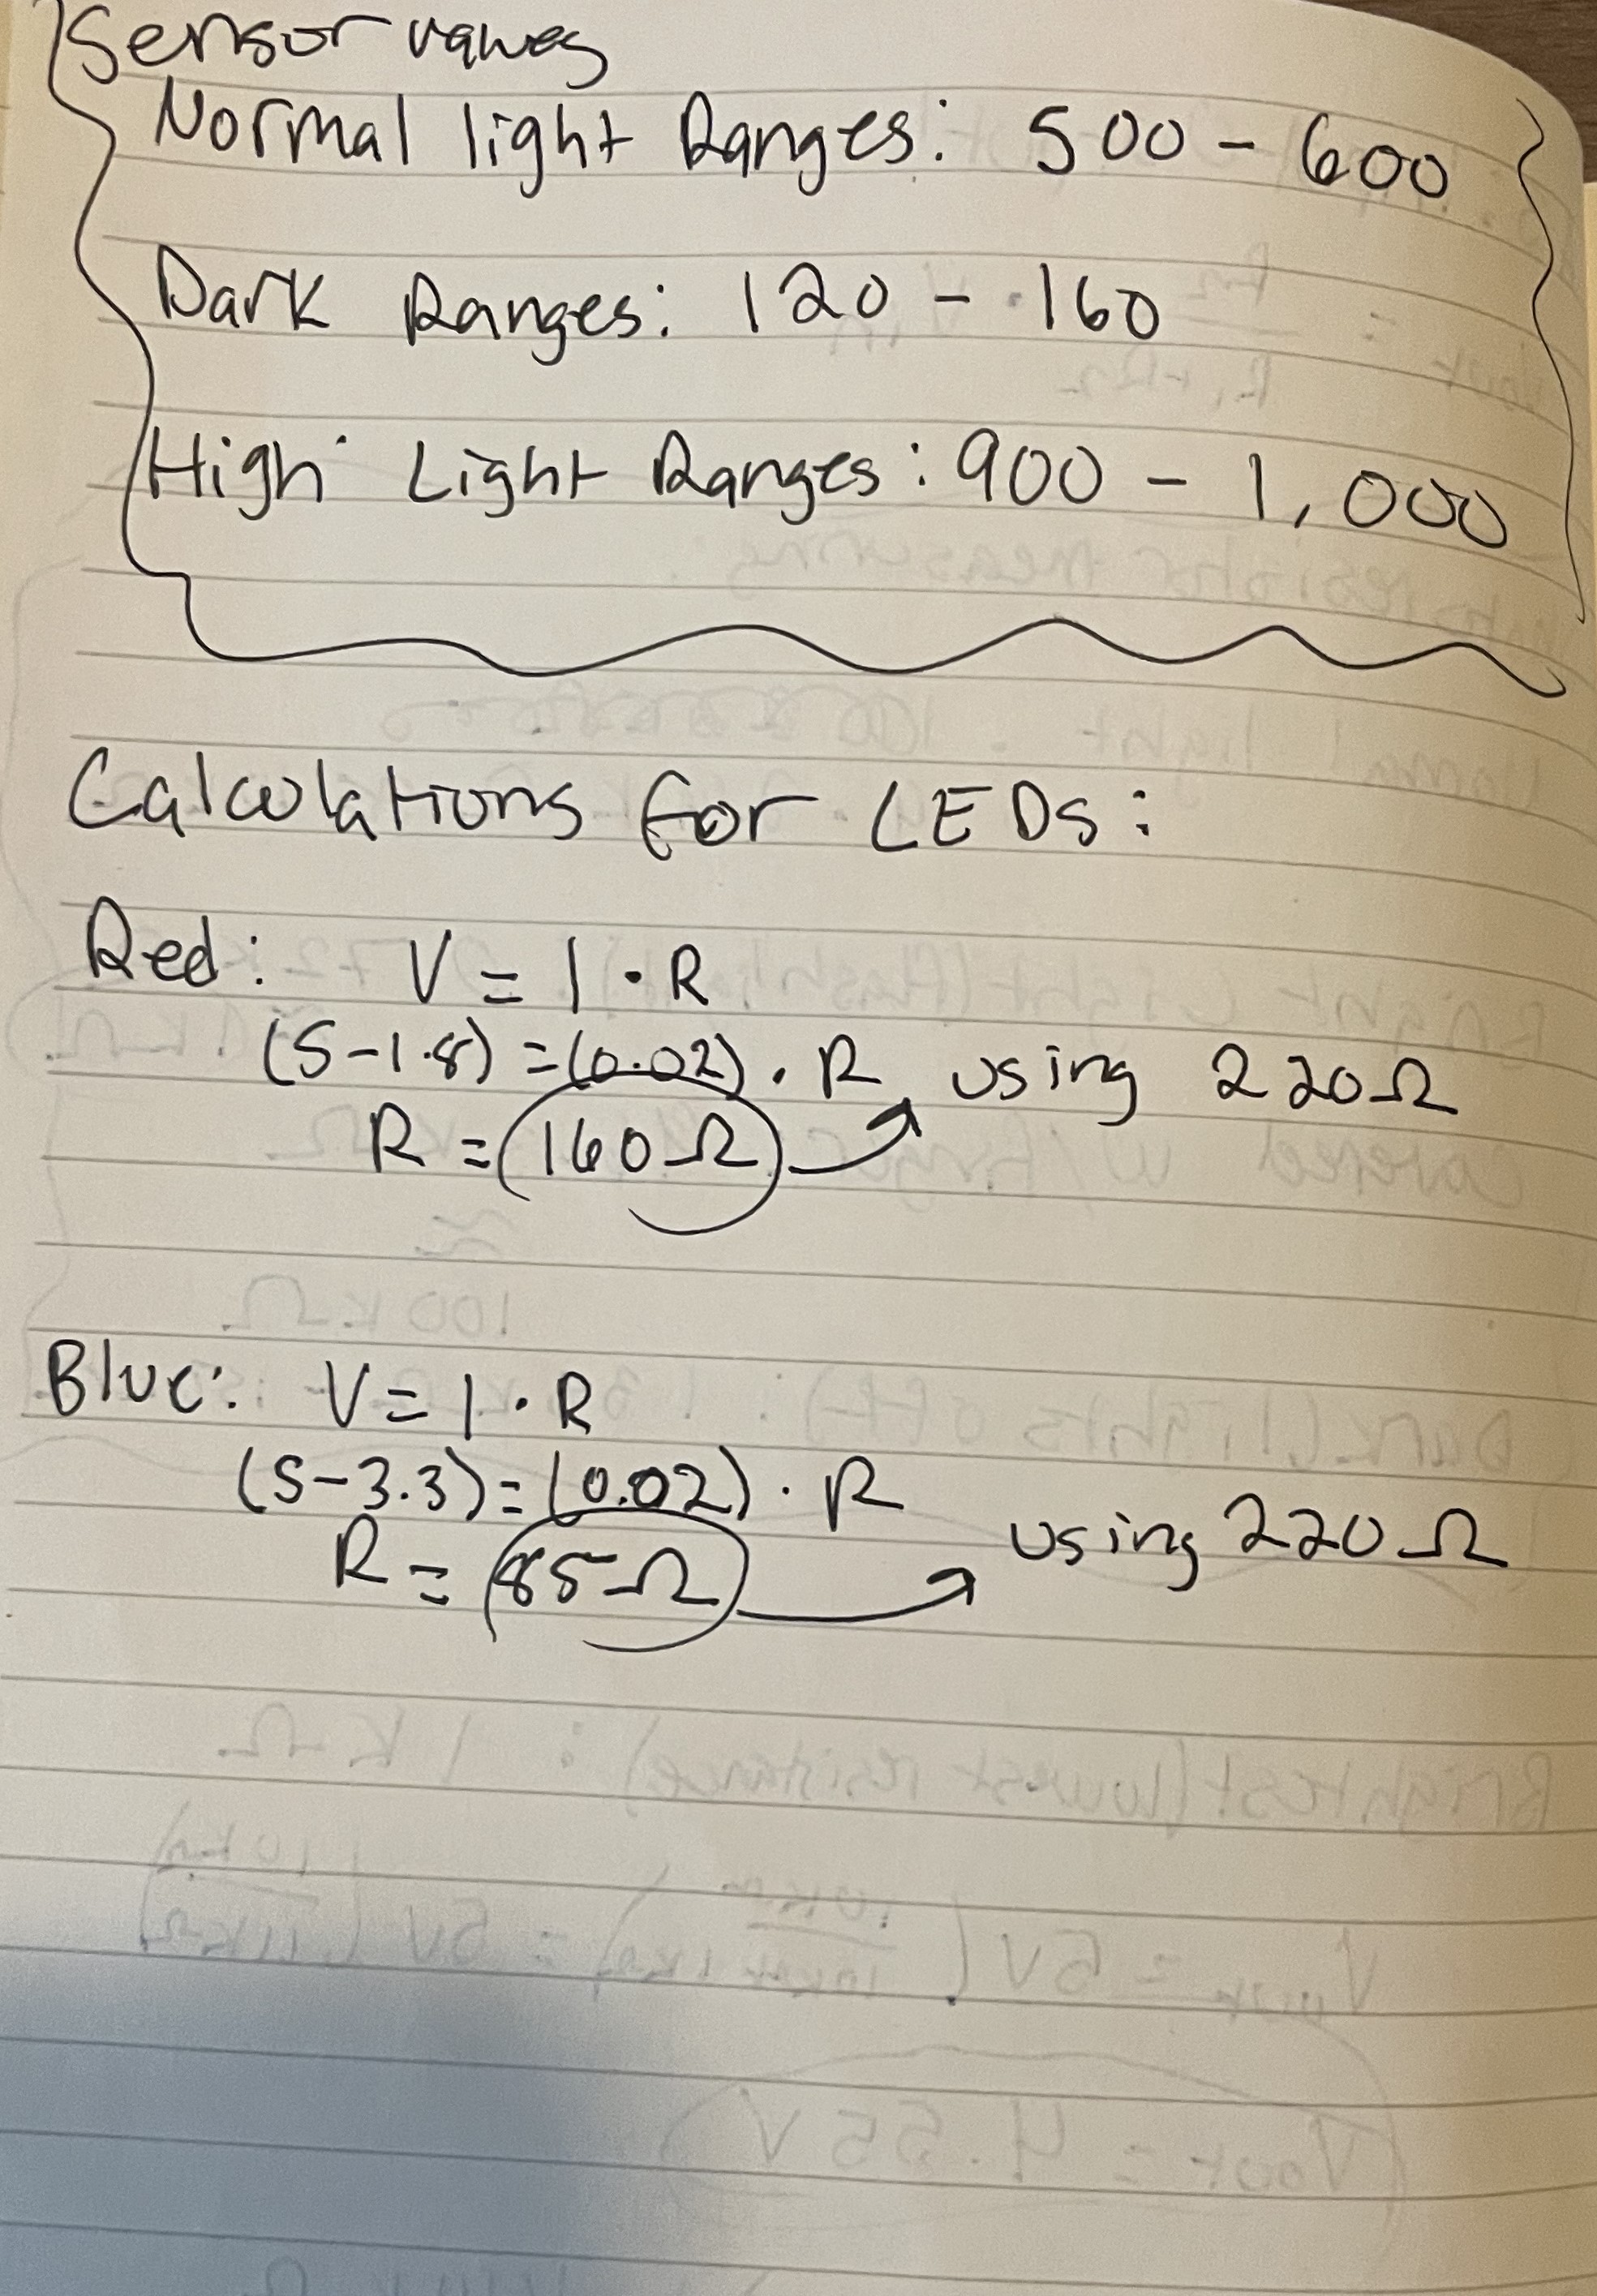 Sensor values
Normal light Ranges: 500 - 600
Dark Ranges: 120 - 160
High Light Ranges: 900 - 1,000
Calculations for LEDs:
Red: V = I · R
(5-1.8) = (0.02) · R using 220Ω
R = 160Ω
Blue: V = I · R
(5-3.3) = (0.02) · R
using 220Ω
R = 85Ω